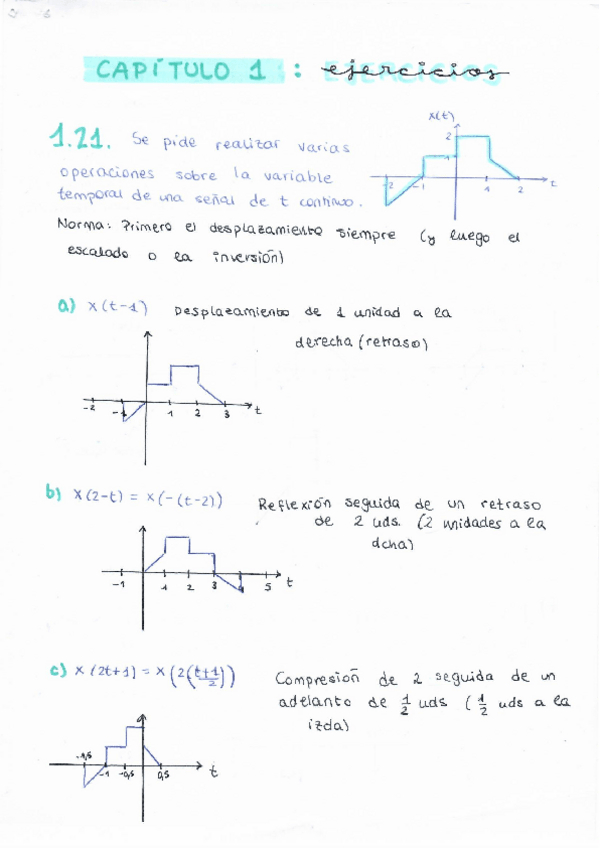 CAPÍTULO 1 : ejercicios
1.21. Se pide realizar varias
operaciones sobre la variable
temporal de una señal de t continuo.
x(t)
2
1
-2 -1 1 2 t
Norma: Primero el desplazamiento siempre (y luego el
escalado o la inversión)
a) x(t-1) Desplazamiento de 1 unidad a la
derecha (retraso)
-2 -1 1 2 3 t
b) x(2-t) = x(-(t-2)) Reflexión seguida de un retraso
de 2 uds. (2 unidades a la
dcha)
-1 1 2 3 4 5 t
c) x(2t+1) = x(2(t+1/2)) Compresión de 2 seguida de un
adelanto de 1/2 uds (1/2 uds a la
izda)
-1,5 -1 -0,5 0,5 t